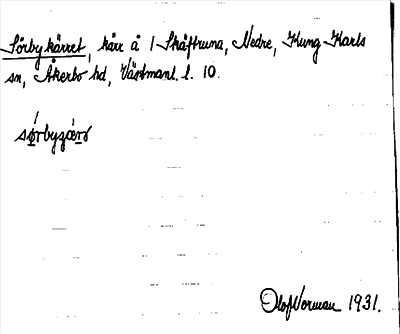 Sörbykärret, kärr å 1 Skäftruna, Nedre, Kung Karls
sn, Åkerbo hd, Västmanl. l. 10.
Olof Norman 1931.